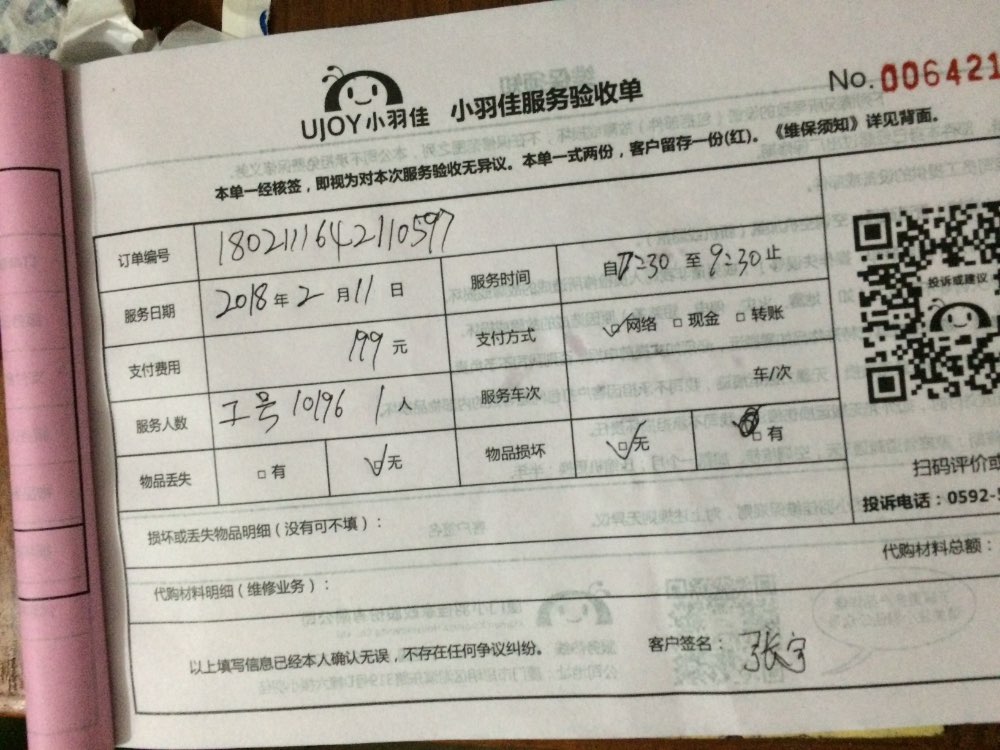 No. 006421
UJOY小羽佳 小羽佳服务验收单
本单一经核签，即视为对本次服务验收无异议。本单一式两份，客户留存一份(红)。《维保须知》详见背面。
订单编号 1802111642110597
服务日期 2018年2月11日 服务时间 自7:30至9:30止
支付费用 199元 支付方式 ☑网络 □现金 □转账
服务人数 工号10196 1人 服务车次 车/次
物品丢失 □有 ☑无 物品损坏 ☑无 □有
投诉或建议
扫码评价或
投诉电话：0592-
损坏或丢失物品明细（没有可不填）：
代购材料明细（维修业务）： 代购材料总额：
以上填写信息已经本人确认无误，不存在任何争议纠纷。 客户签名：张宇